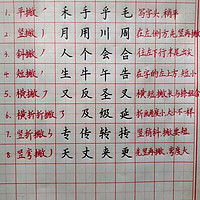 1. 平撇 禾手乎毛 写字头,稍平
2. 竖撇 月用川周 在左侧方是竖再撇
3. 斜撇 人个会合 往左下行末尾
4. 短撇 生牛午告 在字的左上方,短小
5. 横撇 又反圣叉 横短,撇长
6. 横折折撇 及级延 折
7. 竖折撇 专传转 竖稍斜,撇要短
8. 竖弯撇 天丈夹更 先竖再撇,